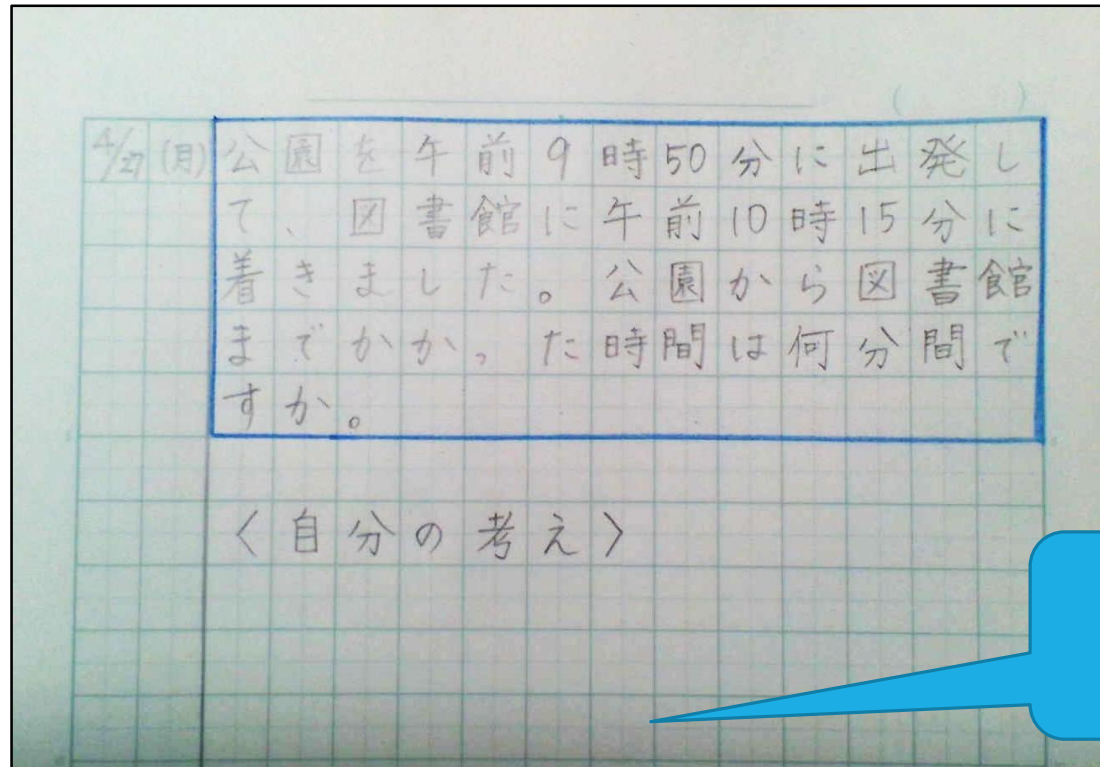 ( )
4/27 (月) 公園を午前9時50分に出発し
て、図書館に午前10時15分に
着きました。公園から図書館
までかかった時間は何分間で
すか。
〈自分の考え〉